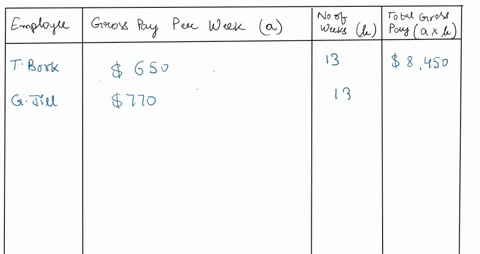 Employee Gross Pay Per Week (a) No of Weeks (b) Total Gross Pay (a x b)
T. Bork $650 13 $8,450
G. Jill $770 13